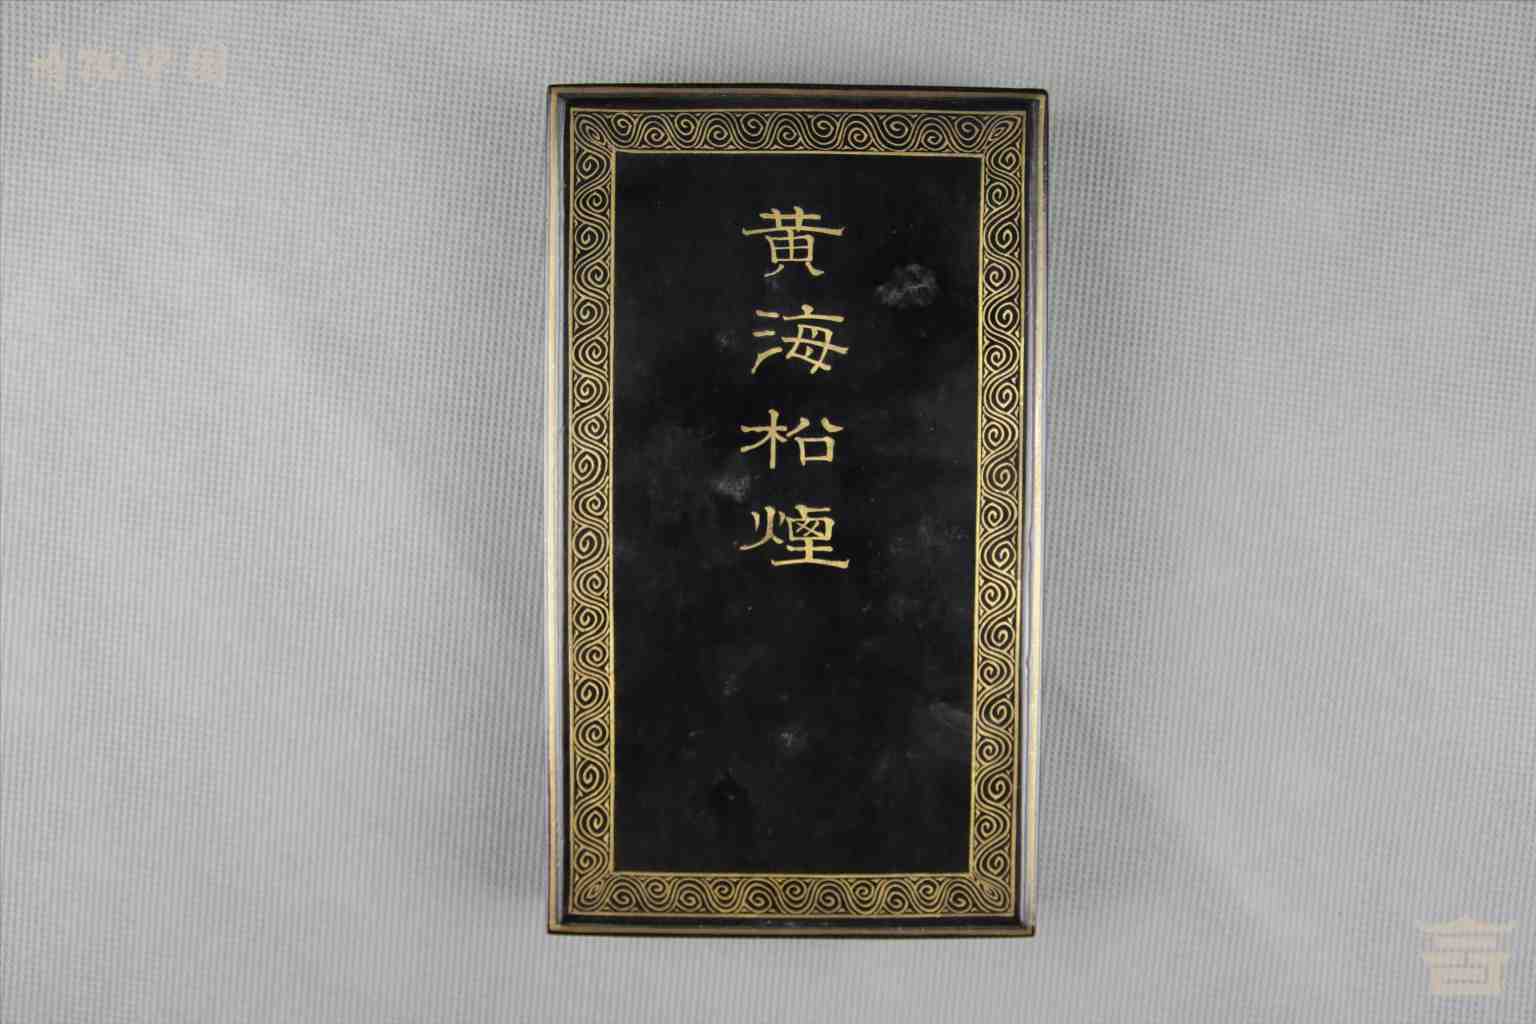 博物中国
黄海松煙